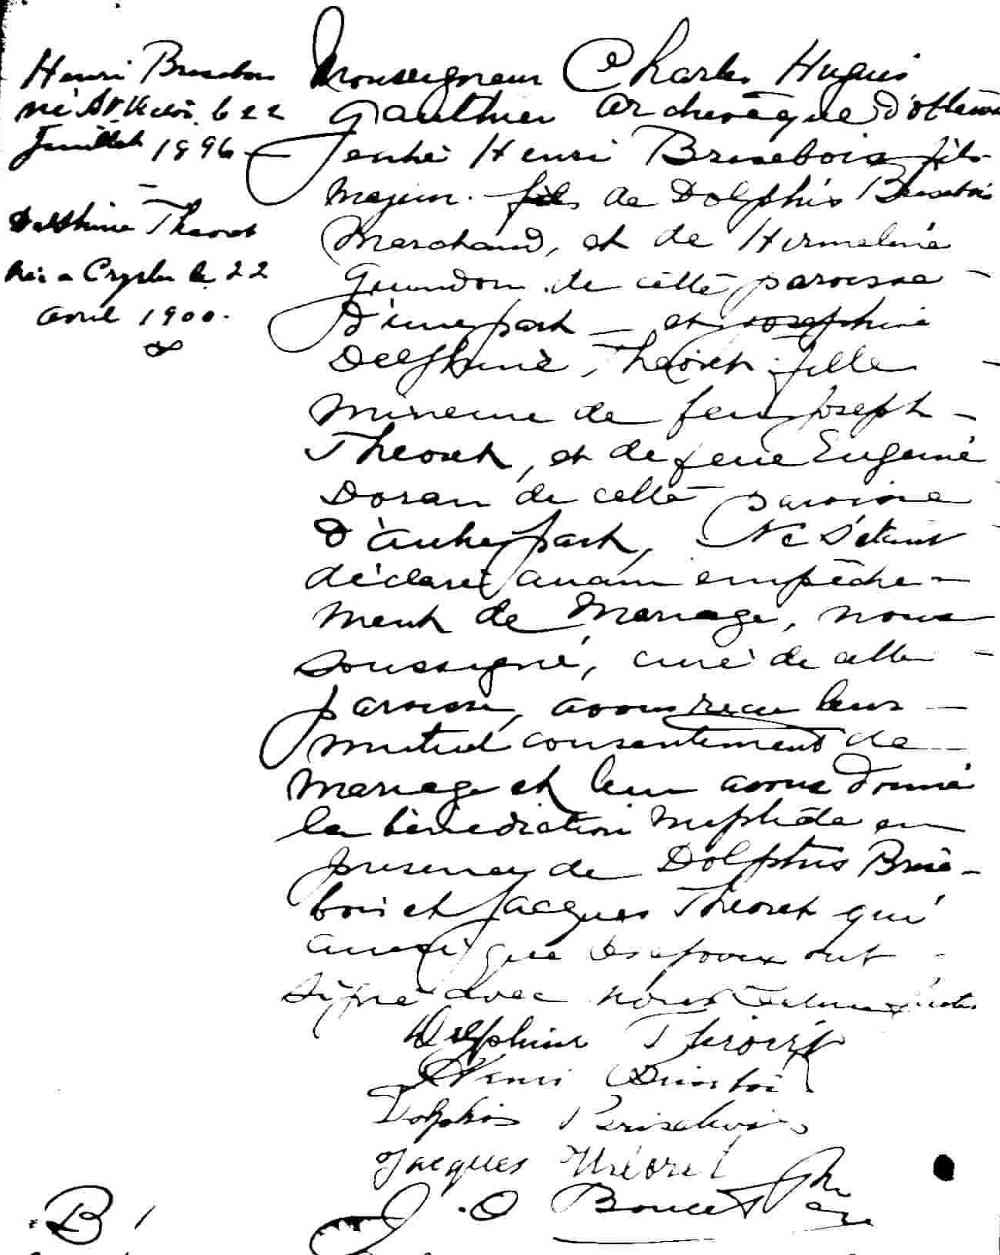 Henri Brisebois
né St Victor le 22
Juillet 1896
Delphine Theoret
née a Crysler le 22
avril 1900.
Monseigneur Charles Hugues
Gauthier Archevêque d'Ottawa
Henri Brisebois fils
majeur de Dolphis Brisebois
Marchand, et de Hermeline
Guindon de cette paroisse
d'une part — et Josephine
Delphine Theoret fille
mineure de feu Joseph
Theoret, et de feue Eugenie
Doran de cette paroisse
d'autre part, Ne s'étant
déclaré aucun empêche-
ment de Mariage, nous
soussigné, curé de cette
paroisse, avons reçu leur
mutuel consentement de
mariage et leur avons donné
la bénédiction nuptiale en
presence de Dolphis Brise-
bois et Jacques Theoret qui
ainsi que les epoux ont
signé avec nous
Delphine Théorét
Henri Brisebois
Dolphis Brisebois
Jacques Théoret
J. O. Boucet Ptre
B